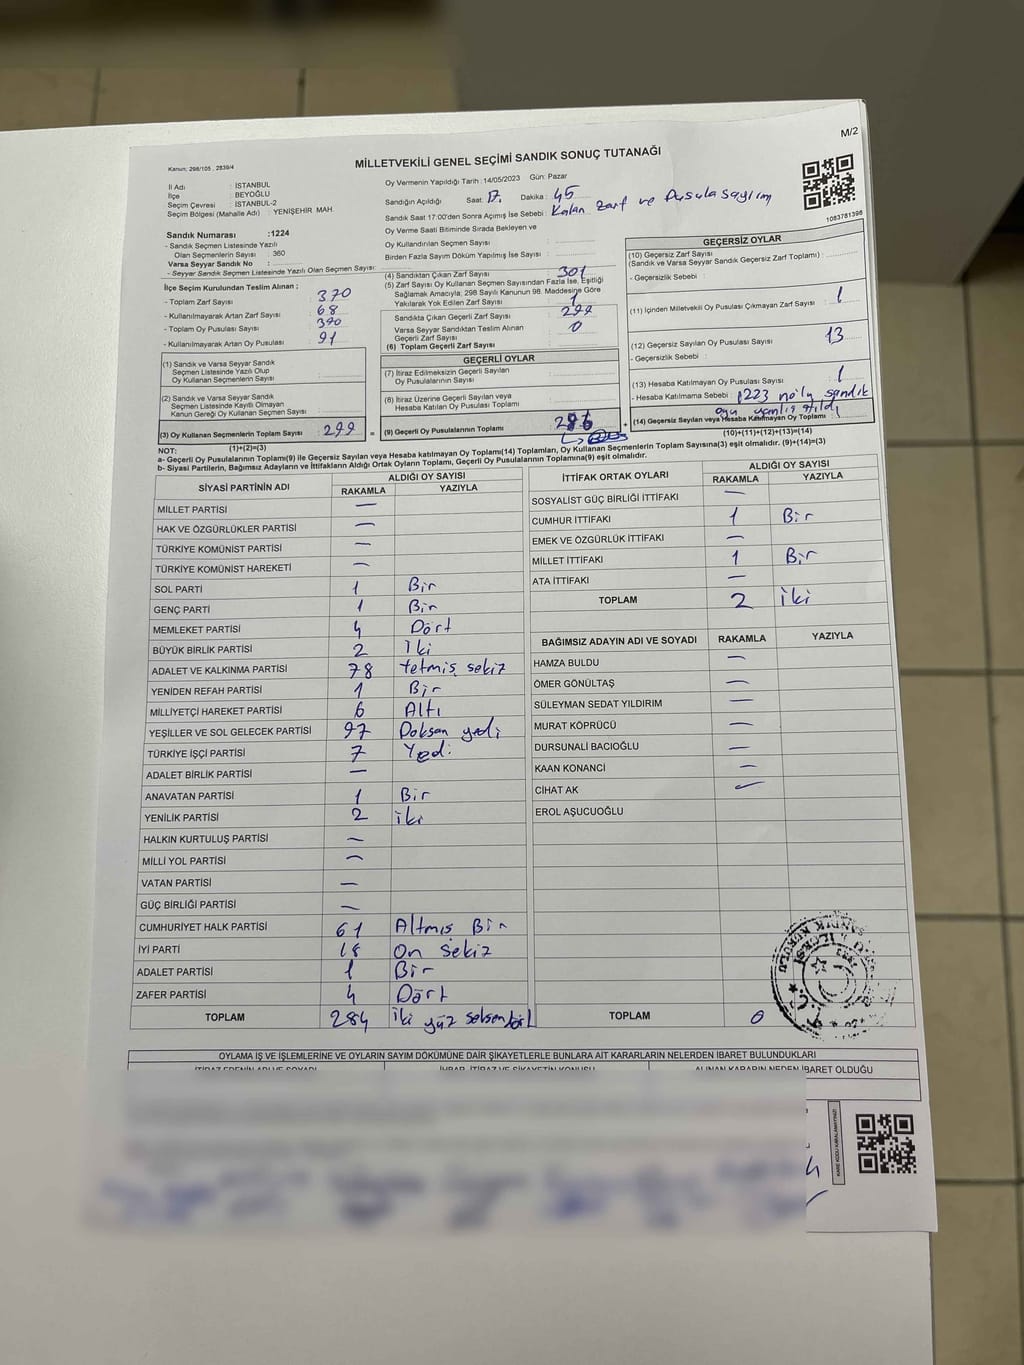 M/2
Kanun: 298/105 , 2839/4
MİLLETVEKİLİ GENEL SEÇİMİ SANDIK SONUÇ TUTANAĞI
İl Adı : İSTANBUL
İlçe : BEYOĞLU
Seçim Çevresi : İSTANBUL-2
Seçim Bölgesi (Mahalle Adı) : YENİŞEHİR MAH.
Sandık Numarası :1224
- Sandık Seçmen Listesinde Yazılı
Olan Seçmenlerin Sayısı : 360
Varsa Seyyar Sandık No :
- Seyyar Sandık Seçmen Listesinde Yazılı Olan Seçmen Sayısı:
İlçe Seçim Kurulundan Teslim Alınan ;
- Toplam Zarf Sayısı : 370
- Kullanılmayarak Artan Zarf Sayısı : 68
- Toplam Oy Pusulası Sayısı : 370
- Kullanılmayarak Artan Oy Pusulası : 91
(1) Sandık ve Varsa Seyyar Sandık
Seçmen Listesinde Yazılı Olup
Oy Kullanan Seçmenlerin Sayısı :
(2) Sandık ve Varsa Seyyar Sandık
Seçmen Listesinde Kayıtlı Olmayan
Kanun Gereği Oy Kullanan Seçmen Sayısı :
(3) Oy Kullanan Seçmenlerin Toplam Sayısı : 299
(1)+(2)=(3)
Oy Vermenin Yapıldığı Tarih : 14/05/2023 Gün: Pazar
Sandığın Açıldığı Saat: 17. Dakika : 45
Sandık Saat 17:00'den Sonra Açımış İse Sebebi : Kalan zarf ve Pusula sayımı
Oy Verme Saati Bitiminde Sırada Bekleyen ve
Oy Kullandırılan Seçmen Sayısı :
Birden Fazla Sayım Döküm Yapılmış İse Sayısı :
(4) Sandıktan Çıkan Zarf Sayısı : 301
(5) Zarf Sayısı Oy Kullanan Seçmen Sayısından Fazla İse, Eşitliği
Sağlamak Amacıyla; 298 Sayılı Kanunun 98. Maddesine Göre
Yakılarak Yok Edilen Zarf Sayısı : 1
Sandıkta Çıkan Geçerli Zarf Sayısı : 299
Varsa Seyyar Sandıktan Teslim Alınan
Geçerli Zarf Sayısı : 0
(6) Toplam Geçerli Zarf Sayısı :
GEÇERLİ OYLAR
(7) İtiraz Edilmeksizin Geçerli Sayılan
Oy Pusulalarının Sayısı :
(8) İtiraz Üzerine Geçerli Sayılan veya
Hesaba Katılan Oy Pusulası Toplamı :
= (9) Geçerli Oy Pusulalarının Toplamı : 286 +
1083781398
GEÇERSİZ OYLAR
(10) Geçersiz Zarf Sayısı
(Sandık ve Varsa Seyyar Sandık Geçersiz Zarf Toplamı) :
- Geçersizlik Sebebi :
(11) İçinden Milletvekili Oy Pusulası Çıkmayan Zarf Sayısı : 1
(12) Geçersiz Sayılan Oy Pusulası Sayısı : 13
- Geçersizlik Sebebi :
(13) Hesaba Katılmayan Oy Pusulası Sayısı : 1
- Hesaba Katılmama Sebebi : 1223 no'lu sandık
oyu yanlış atıldı
(14) Geçersiz Sayılan veya Hesaba Katılmayan Oy Toplamı :
(10)+(11)+(12)+(13)=(14)
NOT:
a- Geçerli Oy Pusulalarının Toplamı(9) ile Geçersiz Sayılan veya Hesaba katılmayan Oy Toplamı(14) Toplamları, Oy Kullanan Seçmenlerin Toplam Sayısına(3) eşit olmalıdır. (9)+(14)=(3)
b- Siyasi Partilerin, Bağımsız Adayların ve İttifakların Aldığı Ortak Oyların Toplamı, Geçerli Oy Pusulalarının Toplamına(9) eşit olmalıdır.
SİYASİ PARTİNİN ADI ALDIĞI OY SAYISI
RAKAMLA YAZIYLA
MİLLET PARTİSİ —
HAK VE ÖZGÜRLÜKLER PARTİSİ —
TÜRKİYE KOMÜNİST PARTİSİ —
TÜRKİYE KOMÜNİST HAREKETİ —
SOL PARTİ 1 Bir
GENÇ PARTİ 1 Bir
MEMLEKET PARTİSİ 4 Dört
BÜYÜK BİRLİK PARTİSİ 2 İki
ADALET VE KALKINMA PARTİSİ 78 Yetmiş sekiz
YENİDEN REFAH PARTİSİ 1 Bir
MİLLİYETÇİ HAREKET PARTİSİ 6 Altı
YEŞİLLER VE SOL GELECEK PARTİSİ 97 Doksan yedi
TÜRKİYE İŞÇİ PARTİSİ 7 Yedi
ADALET BİRLİK PARTİSİ —
ANAVATAN PARTİSİ 1 Bir
YENİLİK PARTİSİ 2 iki
HALKIN KURTULUŞ PARTİSİ —
MİLLİ YOL PARTİSİ —
VATAN PARTİSİ —
GÜÇ BİRLİĞİ PARTİSİ —
CUMHURİYET HALK PARTİSİ 61 Altmış Bir
İYİ PARTİ 18 On sekiz
ADALET PARTİSİ 1 Bir
ZAFER PARTİSİ 4 Dört
TOPLAM 284 iki yüz seksendört
İTTİFAK ORTAK OYLARI ALDIĞI OY SAYISI
RAKAMLA YAZIYLA
SOSYALİST GÜÇ BİRLİĞİ İTTİFAKI —
CUMHUR İTTİFAKI 1 Bir
EMEK VE ÖZGÜRLÜK İTTİFAKI —
MİLLET İTTİFAKI 1 Bir
ATA İTTİFAKI —
TOPLAM 2 iki
BAĞIMSIZ ADAYIN ADI VE SOYADI RAKAMLA YAZIYLA
HAMZA BULDU —
ÖMER GÖNÜLTAŞ —
SÜLEYMAN SEDAT YILDIRIM —
MURAT KÖPRÜCÜ —
DURSUNALİ BACIOĞLU —
KAAN KONANCİ —
CİHAT AK —
EROL AŞUCUOĞLU
TOPLAM 0
OYLAMA İŞ VE İŞLEMLERİNE VE OYLARIN SAYIM DÖKÜMÜNE DAİR ŞİKAYETLERLE BUNLARA AİT KARARLARIN NELERDEN İBARET BULUNDUKLARI
İTİRAZ EDENİN ADI VE SOYADI İHBAR, İTİRAZ VE ŞİKAYETİN KONUSU ALINAN KARARIN NEDEN İBARET OLDUĞU